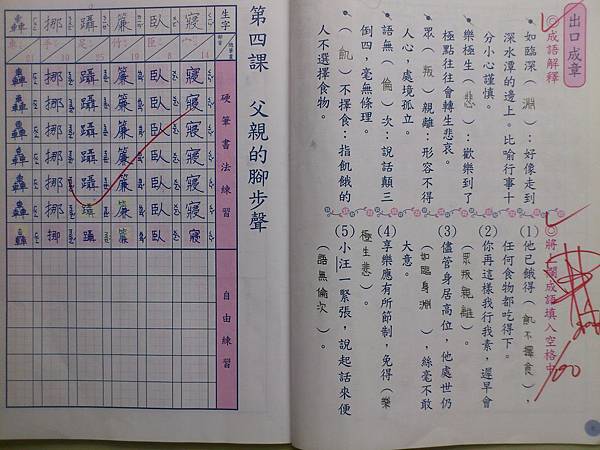 出口成章
◎成語解釋
•如臨深(淵)：好像走到
深水潭的邊上。比喻行事十
分小心謹慎。
•樂極生(悲)：歡樂到了
極點往往會轉生悲哀。
•眾(叛)親離：形容不得
人心，處境孤立。
•語無(倫)次：說話顛三
倒四，毫無條理。
•(飢)不擇食：指飢餓的
人不選擇食物。
◎將上欄成語填入空格中
(1)他已餓得(飢不擇食)，
任何食物都吃得下。
(2)你再這樣我行我素，遲早會
(眾叛親離)。
(3)儘管身居高位，他處世仍
(如臨身淵)，絲毫不敢
大意。
(4)享樂應有所節制，免得(樂
極生悲)。
(5)小汪一緊張，說起話來便
(語無倫次)。
100
第四課 父親的腳步聲
生字
部首
總筆畫
硬筆書法練習
自由練習
寢 宀 14
寢 寢 寢 寢 寢 寢 寢
臥 臣
臥 臥 臥 臥 臥 臥 臥
簾 竹
簾 簾 簾 簾 簾 簾 簾
躡 足
躡 躡 躡 躡 躡 躡 躡
挪 手
挪 挪 挪 挪 挪 挪 挪
轟 車 21
轟 轟 轟 轟 轟 轟 轟